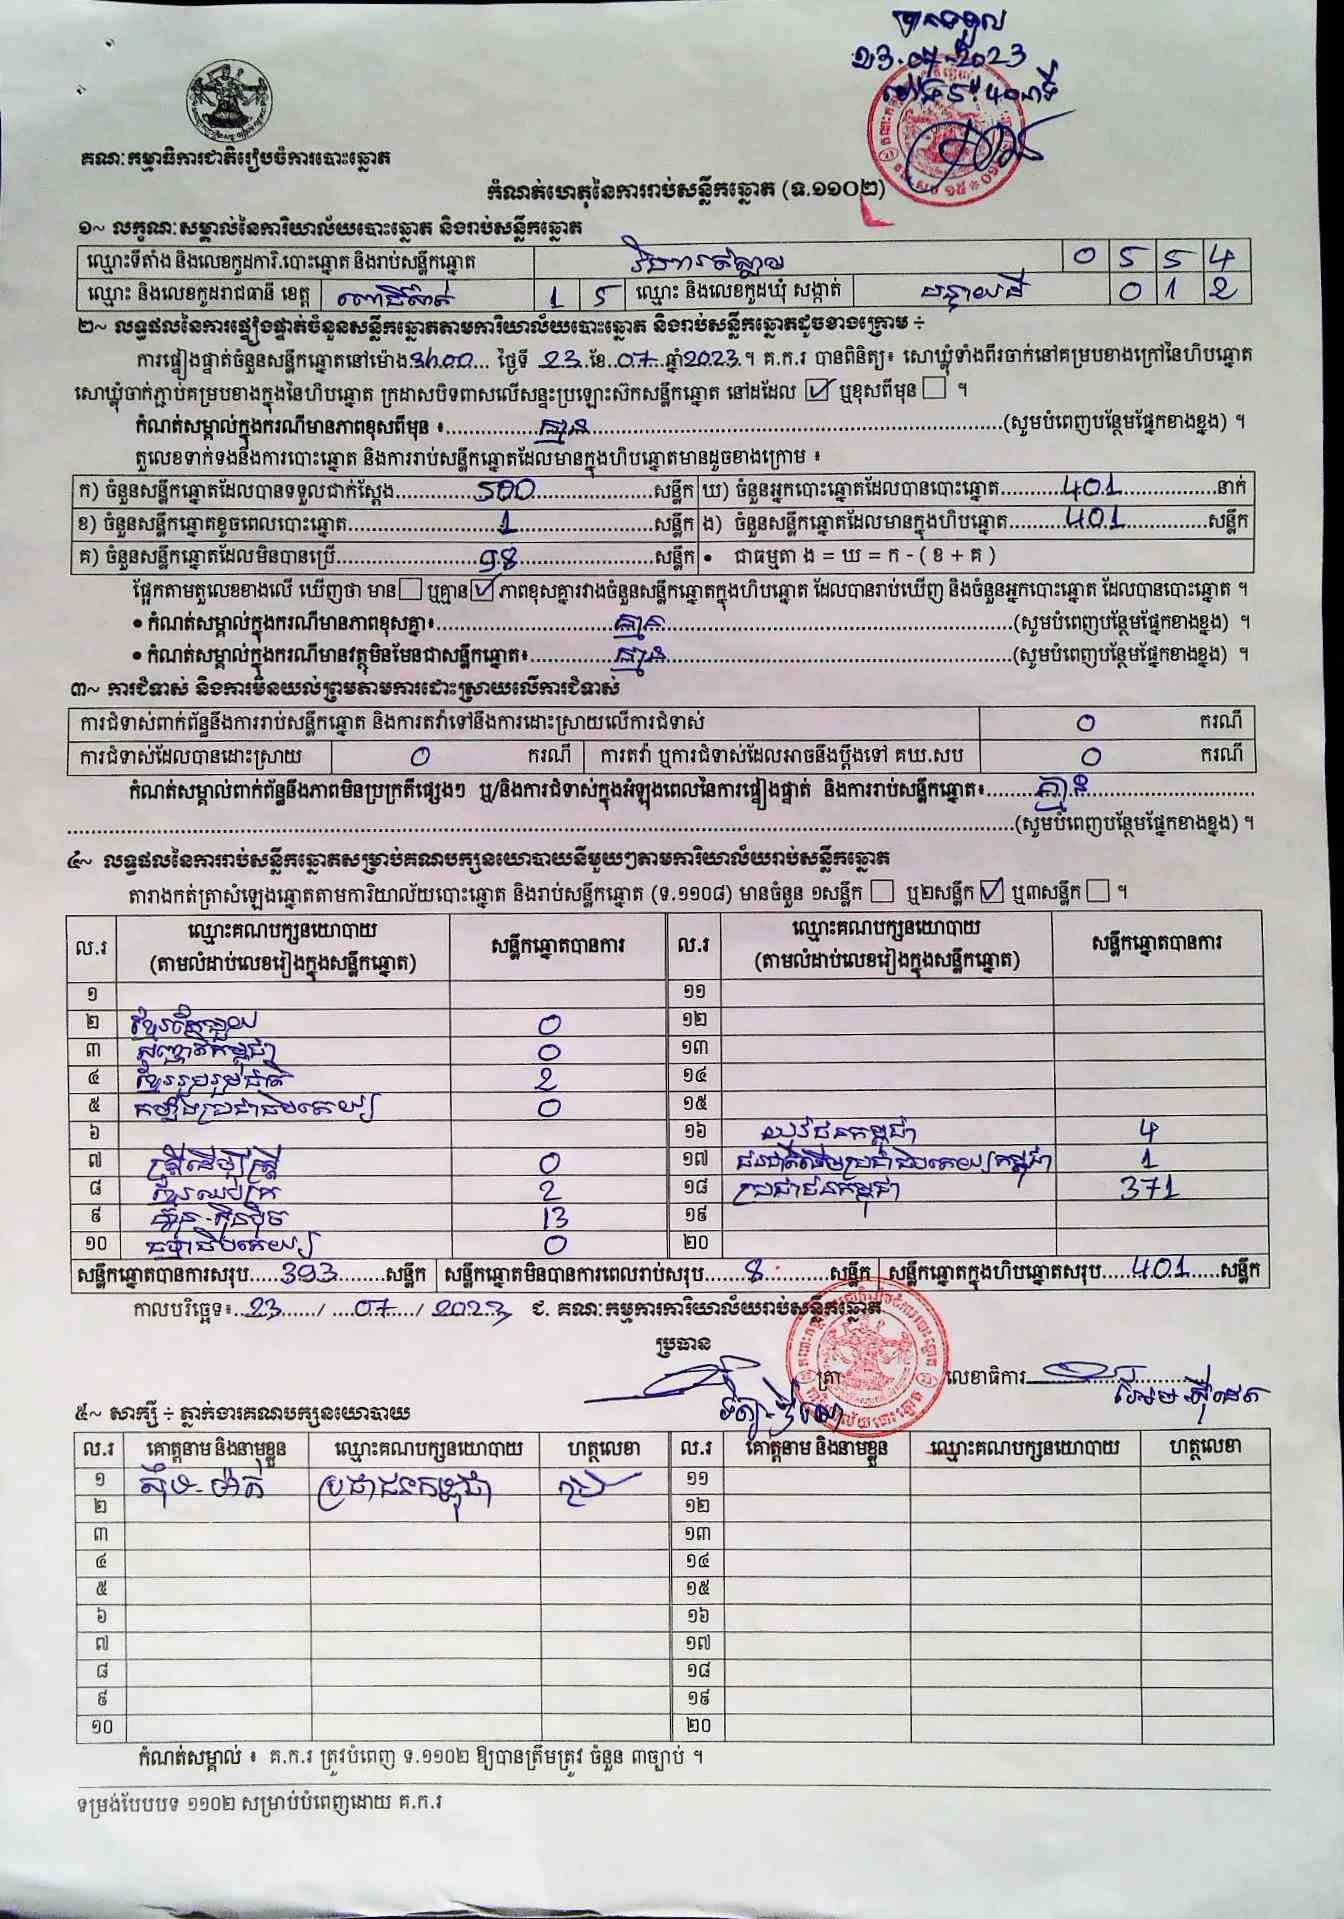 បានទទួល
23.07.2023
គណៈកម្មាធិការជាតិរៀបចំការបោះឆ្នោត
កំណត់ហេតុនៃការរាប់សន្លឹកឆ្នោត (ទ.១១០២)
១~ លក្ខណៈសម្គាល់នៃការិយាល័យបោះឆ្នោត និងរាប់សន្លឹកឆ្នោត
ឈ្មោះទីតាំង និងលេខកូដការិ.បោះឆ្នោត និងរាប់សន្លឹកឆ្នោត 0 5 5 4
ឈ្មោះ និងលេខកូដរាជធានី ខេត្ត ពោធិ៍សាត់ 1 5 ឈ្មោះ និងលេខកូដឃុំ សង្កាត់ 0 1 2
២~ លទ្ធផលនៃការផ្ទៀងផ្ទាត់ចំនួនសន្លឹកឆ្នោតតាមការិយាល័យបោះឆ្នោត និងរាប់សន្លឹកឆ្នោតដូចខាងក្រោម ÷
ការផ្ទៀងផ្ទាត់ចំនួនសន្លឹកឆ្នោតនៅម៉ោង 3h00 ថ្ងៃទី 23 ខែ 07 ឆ្នាំ 2023 ។ គ.ក.រ បានពិនិត្យ៖ សោឃ្លុំទាំងពីរចាក់នៅគម្របខាងក្រៅនៃហិបឆ្នោត
សោឃ្លុំចាក់ភ្ជាប់គម្របខាងក្នុងនៃហិបឆ្នោត ក្រដាសបិទពាសលើសន្ទះប្រឡោះស៊កសន្លឹកឆ្នោត នៅដដែល ☑ ឬខុសពីមុន ☐ ។
កំណត់សម្គាល់ក្នុងករណីមានភាពខុសពីមុន ៖ គ្មាន (សូមបំពេញបន្ថែមផ្នែកខាងខ្នង) ។
តួលេខទាក់ទងនឹងការបោះឆ្នោត និងការរាប់សន្លឹកឆ្នោតដែលមានក្នុងហិបឆ្នោតមានដូចខាងក្រោម ៖
ក) ចំនួនសន្លឹកឆ្នោតដែលបានទទួលជាក់ស្តែង 500 សន្លឹក ឃ) ចំនួនអ្នកបោះឆ្នោតដែលបានបោះឆ្នោត 401 នាក់
ខ) ចំនួនសន្លឹកឆ្នោតខូចពេលបោះឆ្នោត 1 សន្លឹក ង) ចំនួនសន្លឹកឆ្នោតដែលមានក្នុងហិបឆ្នោត 401 សន្លឹក
គ) ចំនួនសន្លឹកឆ្នោតដែលមិនបានប្រើ 98 សន្លឹក • ជាធម្មតា ង = ឃ = ក - ( ខ + គ )
ផ្អែកតាមតួលេខខាងលើ ឃើញថា មាន ☐ ឬគ្មាន ☑ ភាពខុសគ្នារវាងចំនួនសន្លឹកឆ្នោតក្នុងហិបឆ្នោត ដែលបានរាប់ឃើញ និងចំនួនអ្នកបោះឆ្នោត ដែលបានបោះឆ្នោត ។
• កំណត់សម្គាល់ក្នុងករណីមានភាពខុសគ្នា៖ គ្មាន (សូមបំពេញបន្ថែមផ្នែកខាងខ្នង) ។
• កំណត់សម្គាល់ក្នុងករណីមានវត្ថុមិនមែនជាសន្លឹកឆ្នោត៖ គ្មាន (សូមបំពេញបន្ថែមផ្នែកខាងខ្នង) ។
៣~ ការជំទាស់ និងការមិនយល់ព្រមតាមការដោះស្រាយលើការជំទាស់
ការជំទាស់ពាក់ព័ន្ធនឹងការរាប់សន្លឹកឆ្នោត និងការតវ៉ាទៅនឹងការដោះស្រាយលើការជំទាស់ 0 ករណី
ការជំទាស់ដែលបានដោះស្រាយ 0 ករណី ការតវ៉ា ឬការជំទាស់ដែលអាចនឹងប្តឹងទៅ គឃ.សប 0 ករណី
កំណត់សម្គាល់ពាក់ព័ន្ធនឹងភាពមិនប្រក្រតីផ្សេងៗ ឬ/និងការជំទាស់ក្នុងអំឡុងពេលនៃការផ្ទៀងផ្ទាត់ និងការរាប់សន្លឹកឆ្នោត៖ គ្មាន
(សូមបំពេញបន្ថែមផ្នែកខាងខ្នង) ។
៤~ លទ្ធផលនៃការរាប់សន្លឹកឆ្នោតសម្រាប់គណបក្សនយោបាយនីមួយៗតាមការិយាល័យរាប់សន្លឹកឆ្នោត
តារាងកត់ត្រាសំឡេងឆ្នោតតាមការិយាល័យបោះឆ្នោត និងរាប់សន្លឹកឆ្នោត (ទ.១១០៨) មានចំនួន ១សន្លឹក ☐ ឬ២សន្លឹក ☑ ឬ៣សន្លឹក ☐ ។
ល.រ ឈ្មោះគណបក្សនយោបាយ (តាមលំដាប់លេខរៀងក្នុងសន្លឹកឆ្នោត) សន្លឹកឆ្នោតបានការ ល.រ ឈ្មោះគណបក្សនយោបាយ (តាមលំដាប់លេខរៀងក្នុងសន្លឹកឆ្នោត) សន្លឹកឆ្នោតបានការ
១ ១១
២ 0 ១២
៣ 0 ១៣
៤ ខ្មែររួបរួមជាតិ 2 ១៤
៥ កម្លាំងប្រជាធិបតេយ្យ 0 ១៥
៦ ១៦ យុវជនកម្ពុជា 4
៧ ស្ត្រីដើម្បីស្ត្រី 0 ១៧ ជនជាតិដើមប្រជាធិបតេយ្យកម្ពុជា 1
៨ ខ្មែរឈប់ក្រ 2 ១៨ ប្រជាជនកម្ពុជា 371
៩ ហ៊្វុនស៊ិនប៉ិច 13 ១៩
១០ ធម្មាធិបតេយ្យ 0 ២០
សន្លឹកឆ្នោតបានការសរុប 393 សន្លឹក សន្លឹកឆ្នោតមិនបានការពេលរាប់សរុប 8 សន្លឹក សន្លឹកឆ្នោតក្នុងហិបឆ្នោតសរុប 401 សន្លឹក
កាលបរិច្ឆេទ៖ 23 / 07 / 2023 ជ. គណៈកម្មការការិយាល័យរាប់សន្លឹកឆ្នោត
ប្រធាន
ត្រា លេខាធិការ
៥~ សាក្សី ÷ ភ្នាក់ងារគណបក្សនយោបាយ
ល.រ គោត្តនាម និងនាមខ្លួន ឈ្មោះគណបក្សនយោបាយ ហត្ថលេខា ល.រ គោត្តនាម និងនាមខ្លួន ឈ្មោះគណបក្សនយោបាយ ហត្ថលេខា
១ ប្រជាជនកម្ពុជា ១១
២ ១២
៣ ១៣
៤ ១៤
៥ ១៥
៦ ១៦
៧ ១៧
៨ ១៨
៩ ១៩
១០ ២០
កំណត់សម្គាល់ ៖ គ.ក.រ ត្រូវបំពេញ ទ.១១០២ ឱ្យបានត្រឹមត្រូវ ចំនួន ៣ច្បាប់ ។
ទម្រង់បែបបទ ១១០២ សម្រាប់បំពេញដោយ គ.ក.រ